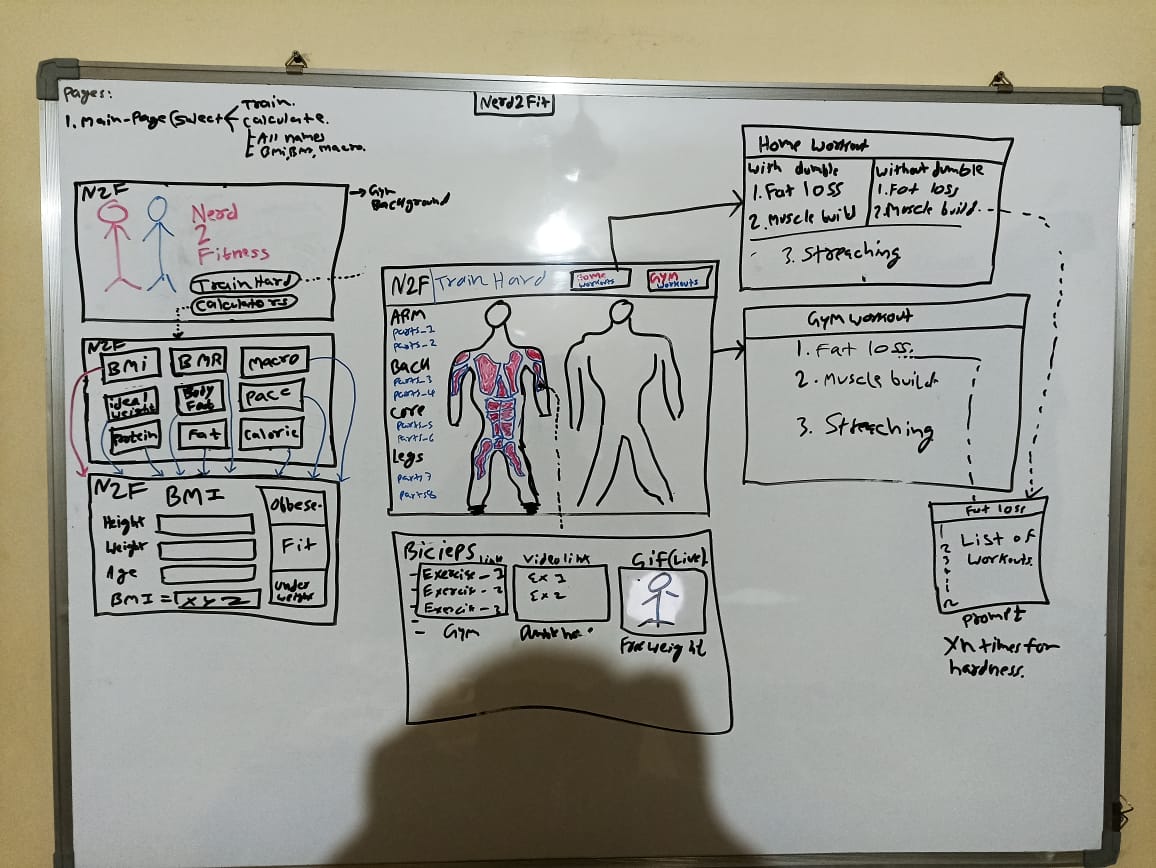 Pages:
Nerd2Fit
1. Main-Page (Select
Train.
Calculate.
All names
BMi, BMR, macro.
N2F
Gym
Background
Nerd
2
Fitness
Train Hard
Calculators
N2F
BMi
BMR
Macro
ideal
weight
Body
Fat
Pace
Protein
Fat
Caloric
N2F BMI
Height
Weight
Age
BMI = XYZ
Obbese
Fit
Under
weight
N2F Train Hard
Home
workouts
GYM
Workouts
ARM
Parts_1
Parts_2
Back
Parts_3
Parts_4
Core
Parts_5
Parts_6
Legs
Parts 7
Parts 8
Bicieps
link
Video link
Gif (Live)
Exercise - 1
Exercis - 2
Exercis - 3
Ex 1
Ex 2
Gym
Free weight
Home Workout
with dumble
1. Fat loss
2. Muscle build
without dumble
1. Fat loss
2. Muscle build.
3. Streaching
Gym workout
1. Fat loss.
2. Muscle build
3. Streaching
Fat loss
1
2
3
4
n
List of
Workouts.
Prompt
Xn times for
hardness.